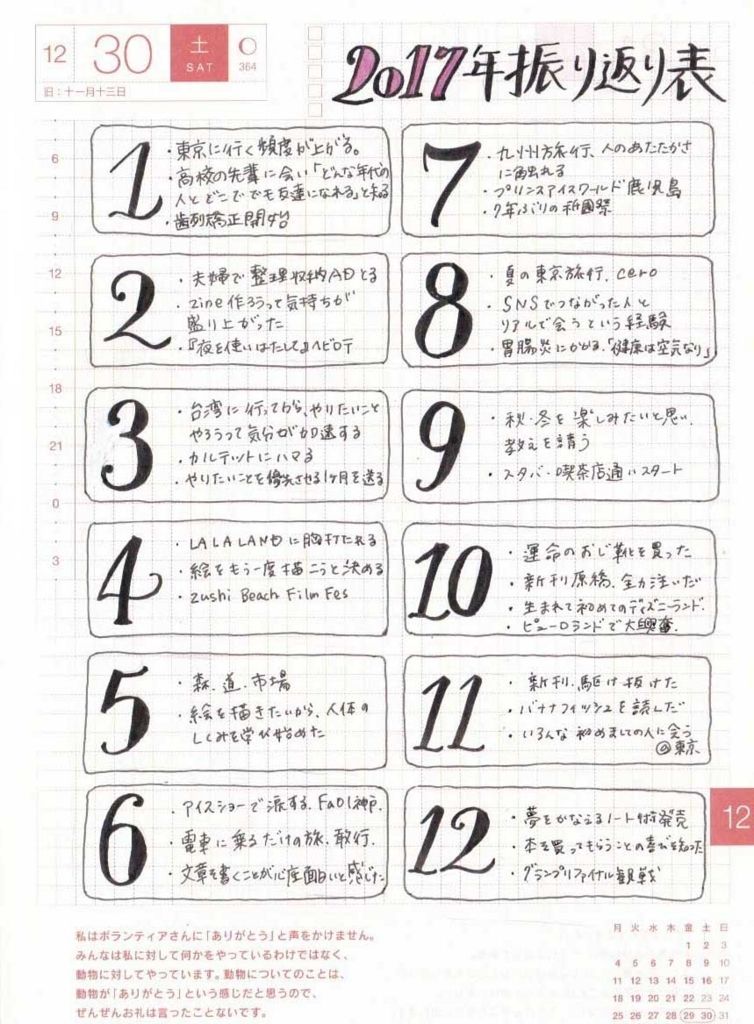 12
30
土
SAT
364
旧：十一月十三日
2017年振り返り表
6
9
12
15
18
21
0
3
1
・東京に行く頻度が上がる。
・高校の先輩に会い「どんな年代の
人とどこででも友達になれる」と知る
・歯列矯正開始
2
・夫婦で整理収納ADとる
・zine作ろうって気持ちが
盛り上がった
・『夜を使いはたして』ヘビロテ
3
・台湾に行ってから、やりたいこと
やろうって気分が加速する
・カルテットにハマる
・やりたいことを優先させる1ヶ月を送る
4
・LALALANDに胸打たれる
・絵をもう一度描こうと決める
・Zushi Beach Film Fes
5
・森、道、市場
・絵を描きたいから、人体の
しくみを学び始めた
6
・アイスショーで涙する、FaOI神戸.
・電車に乗るだけの旅、敢行.
・文章を書くことが心底面白いと感じた
7
・九州旅行、人のあたたかさ
に触れる
・プリンスアイスワールド鹿児島
・7年ぶりの祇園祭
8
・夏の東京旅行、cero
・SNSでつながった人と
リアルで会うという経験
・胃腸炎にかかる.「健康は空気なり」
9
・秋・冬を楽しみたいと思い、
教えを請う
・スタバ・喫茶店通いスタート
10
・運命のおじ靴を買った
・新刊原稿、全力注いだ
・生まれて初めてのディズニーランド.
・ピューロランドで大興奮.
11
・新刊、駆け抜けた
・バナナフィッシュを読んだ
・いろんな初めましての人に会う
@東京
12
・夢をかなえるノート術発売
・本を買ってもらうことの喜びを知った
・グランプリファイナル観戦
12
私はボランティアさんに「ありがとう」と声をかけません。
みんなは私に対して何かをやっているわけではなく、
動物に対してやっています。動物についてのことは、
動物が「ありがとう」という感じだと思うので、
ぜんぜんお礼は言ったことないです。
月 火 水 木 金 土 日
1 2 3
4 5 6 7 8 9 10
11 12 13 14 15 16 17
18 19 20 21 22 23 24
25 26 27 28 29 30 31